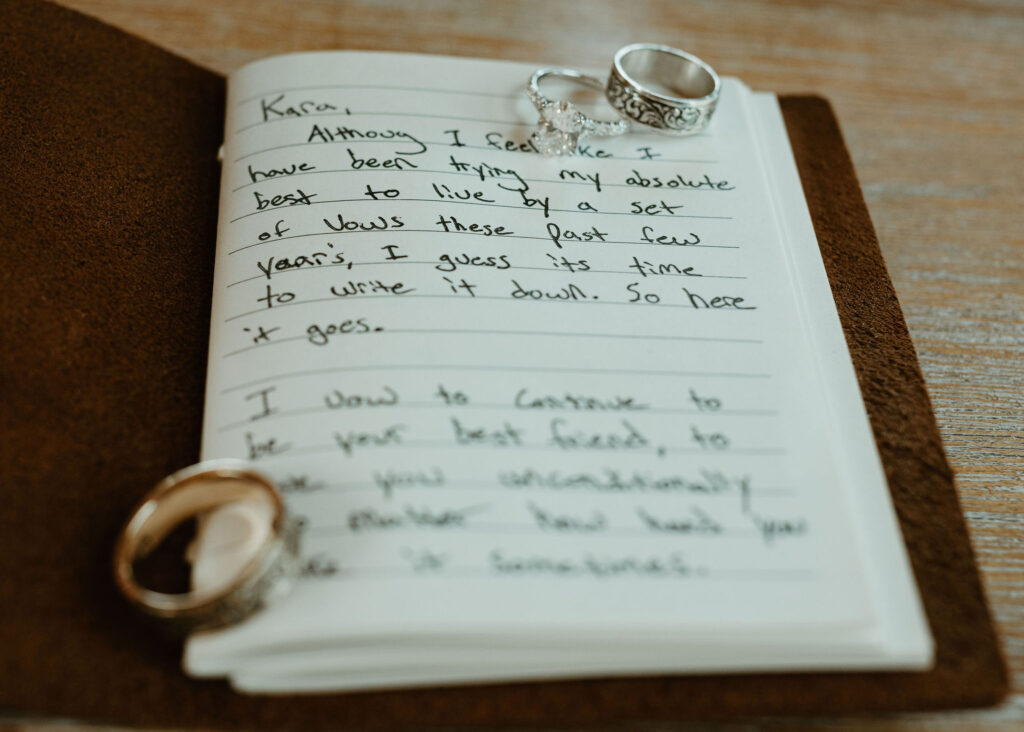 Kara,
Althougy I feel like I
have been trying my absolute
best to live by a set
of vows these past few
year's, I guess its time
to write it down. So here
it goes.
I vow to continue to
be your best friend, to
you unconditionally
matter how hard you
it sometimes.